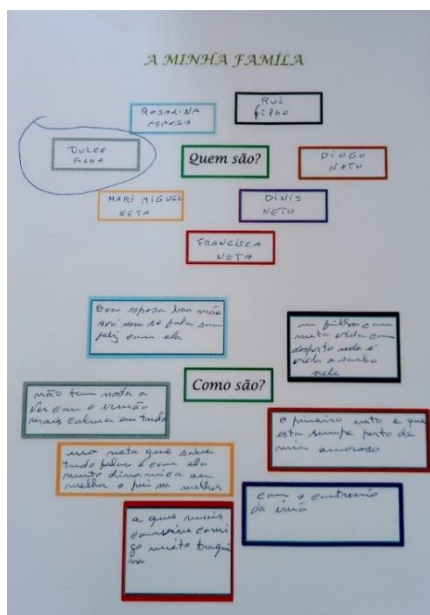 A MINHA FAMÍLA
ROSALINA
ESPOSA
Rui
filho
DULCE
FILHA
Quem são?
DIOGO
NETO
MARI MIGUEL
NETA
DINIS
NETO
FRANCISCA
NETA
Boa esposa boa mãe
avó nem se fala sum
feliz com ela
um filho com
muta vida com
desporto nele é
vida e sonho
nele
Como são?
não tem nada a
ver com o irmão
mais calma em tudo
o primeiro nato e que
esta sempe perto de
mim amoroso
uma neta que sabe
tudo falar é com ela
muito dinamica a
melhor o pui na melhor
com o contrario
da irmã
a que mais
convive comi
go muito traqui
na